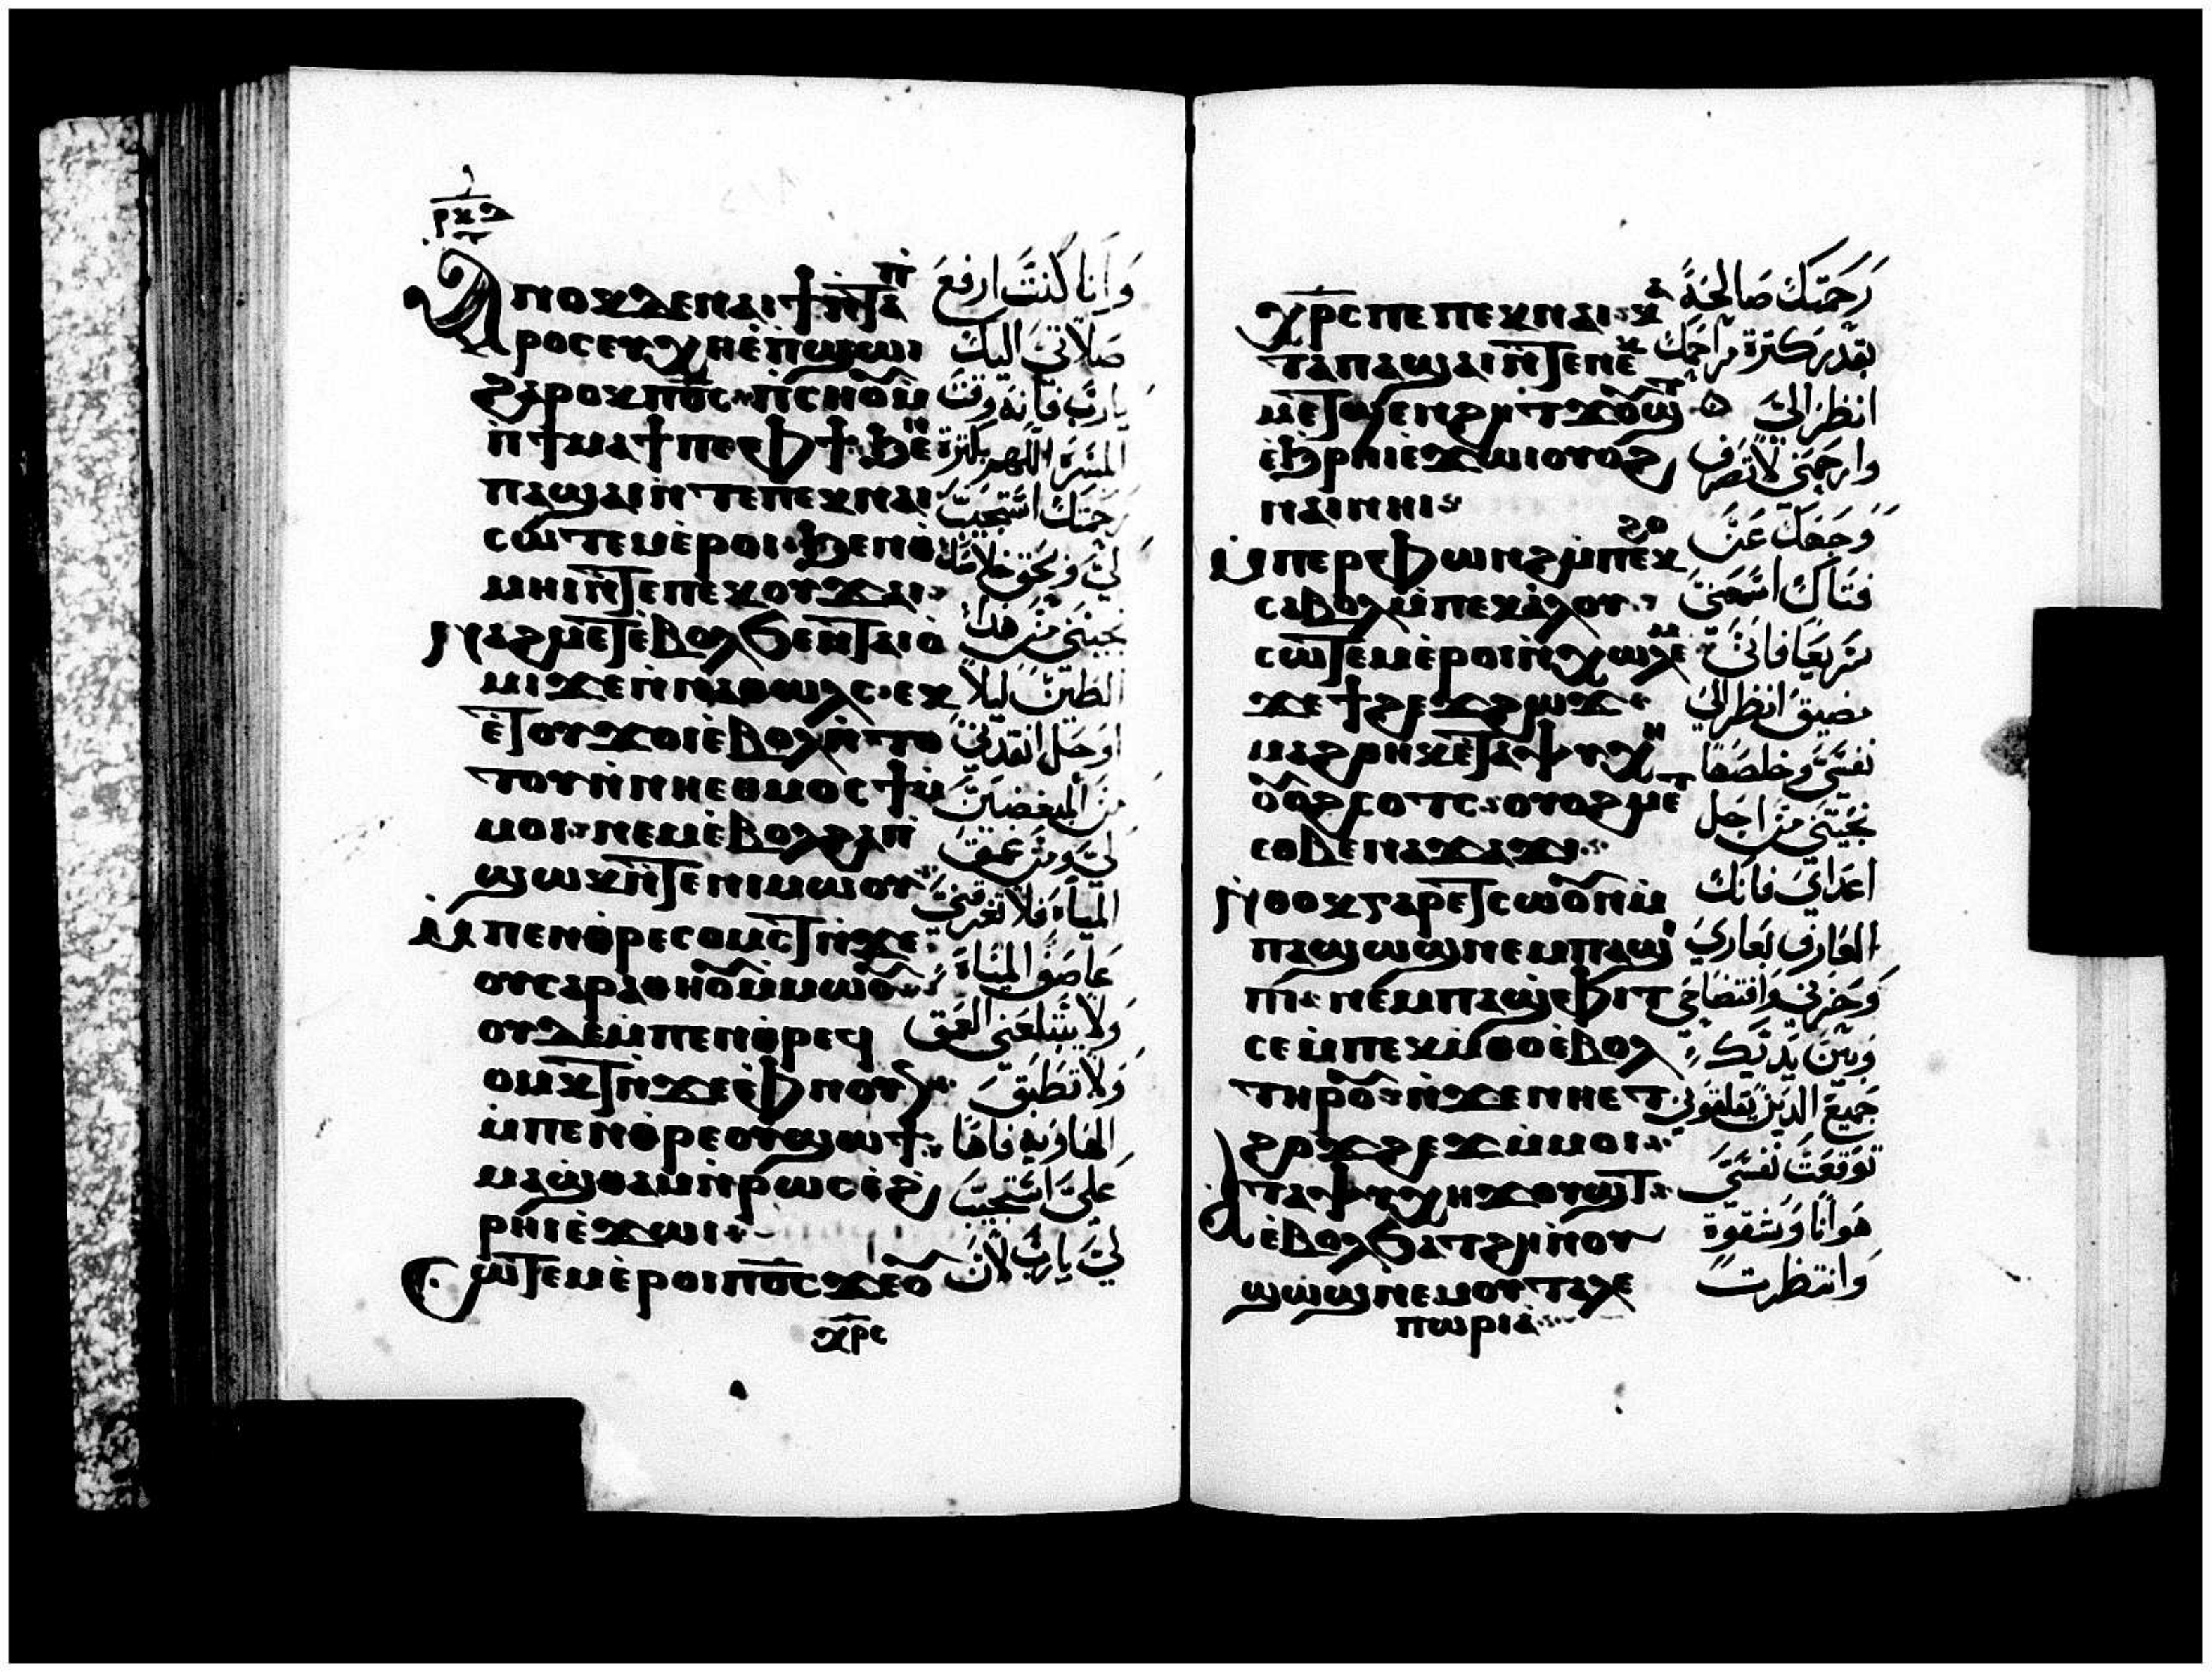 ⲣⲕⲑ
ⲁⲛⲟⲕ ⲇⲉ ⲛⲁⲓϯ ⲛ̀ⲧⲁⲡ
ⲣⲟⲥⲉⲩⲭⲏ ⲉ̀ⲡϣⲱⲓ
ϩⲁⲣⲟⲕ ⲡⲟ̅ⲥ̅ ⲡ̀ⲥⲏⲟⲩ ⲙ̀
ⲡ̀ϯⲙⲁϯ ⲡⲉ ⲫϯ ϧⲉⲛ
ⲡⲁϣⲁⲓ ⲛ̀ⲧⲉ ⲡⲉⲕⲛⲁⲓ
ⲥⲱⲧⲉⲙ ⲉ̀ⲣⲟⲓ ϧⲉⲛ ⲑ
ⲙⲏⲓ ⲛ̀ⲧⲉ ⲡⲉⲕⲟⲩϫⲁⲓ
ⲛⲁϩⲙⲉⲧ ⲉⲃⲟⲗ ϧⲉⲛ ⲧⲁⲓⲟ̀
ⲙⲓ ϫⲉ ⲛ̀ⲛⲁⲑⲱⲗⲥ ⲉⲕ
ⲉ̀ⲧⲟⲩϫⲟⲓ ⲉ̀ⲃⲟⲗ ⲛ̀ⲧⲟ
ⲧⲟⲩ ⲛ̀ⲛⲏⲉⲑⲙⲟⲥϯ ⲙ̀
ⲙⲟⲓ ⲛⲉⲙ ⲉ̀ⲃⲟⲗ ϩⲁ ⲡ̀
ϣⲱⲕ ⲛ̀ⲧⲉ ⲛⲓⲙⲱⲟⲩ
ⲙ̀ⲡⲉⲛⲑⲣⲉⲥⲟⲙⲥⲧ ⲛ̀ϫⲉ
ⲟⲩⲥⲁⲣⲁⲑⲏⲟⲩ ⲙ̀ⲙⲱⲟⲩ
ⲟⲩⲇⲉ ⲙ̀ⲡⲉⲛⲑⲣⲉϥ
ⲟⲙⲕⲧ ⲛ̀ϫⲉ ⲉ̀ⲫⲛⲟⲩⲛ
ⲙ̀ⲡⲉⲛⲑⲣⲉ ⲟⲩϣⲱϯ
ⲙⲁϣⲑⲁⲙ ⲛ̀ⲣⲱⲥ ⲉ̀ϩ
ⲣⲏⲓ ⲉ̀ϫⲱⲓ
ⲥⲱⲧⲉⲙ ⲉ̀ⲣⲟⲓ ⲡⲟ̅ⲥ̅ ϫⲉ ⲟⲩ
ⲭⲣⲥ
وانا كنت ارفع
صلاتي اليك
يارب فانه وقت
المسرة اللهم بكثرة
رحمتك استجيب
لي وبحق خلاصك
نجيني من هذا
الطين ليلا
اوحل انقذني
من المبغضين
لي ومن عمق
المياه فلا تغرقني
عاصف المياه
ولا يبتلعني العمق
ولا تطبق
الهاوية فاها
علي استجيب
لي يارب لان
ⲭⲣⲥ ⲡⲉ ⲡⲉⲕⲛⲁⲓ ⲕⲁ
ⲧⲁ ⲡⲁϣⲁⲓ ⲛ̀ⲧⲉ ⲛⲉⲕ
ⲙⲉⲧϣⲉⲛϩⲏⲧ ϫⲟⲩϣⲧ
ⲉ̀ϧⲣⲏⲓ ⲉ̀ϫⲱⲓ ⲟⲩⲟϩ
ⲛⲁⲓ ⲛⲏⲓ
ⲙ̀ⲡⲉⲣⲫⲱⲛϩ ⲙ̀ⲡⲉⲕϩⲟ
ⲥⲁⲃⲟⲗ ⲙ̀ⲡⲉⲕⲁⲗⲟⲩ
ⲥⲱⲧⲉⲙ ⲉ̀ⲣⲟⲓ ⲛ̀ⲭⲱⲗⲉⲙ
ϫⲉ ϯϩⲉϫϩⲱϫ
ⲙⲁϩⲑⲏⲕ ⲉ̀ⲧⲁⲯⲩⲭⲏ
ⲟⲩⲟϩ ⲥⲟⲧⲥ ⲟⲩⲟϩ ⲛⲁϩⲙⲉⲧ
ⲥⲟⲃⲉ ⲛⲁϫⲁϫⲓ
ⲛ̀ⲑⲟⲕ ⲅⲁⲣ ⲉⲧⲥⲱⲟⲩⲛ ⲙ̀
ⲡⲁϣⲱϣ ⲛⲉⲙ ⲡⲁϣⲓ
ⲡⲓ ⲛⲉⲙ ⲡⲁϣⲫⲓⲧ
ⲥⲉ ⲙ̀ⲡⲉⲕⲙ̀ⲑⲟ ⲉ̀ⲃⲟⲗ
ⲧⲏⲣⲟⲩ ⲛ̀ϫⲉ ⲛⲏⲉⲧ
ϩⲟϫϩⲉϫ ⲙ̀ⲙⲟⲓ
ⲁ ⲧⲁⲯⲩⲭⲏ ϫⲟⲩϣⲧ
ⲉ̀ⲃⲟⲗ ϧⲁⲧϩⲏ ⲛ̀ⲟⲩ
ϣⲱϣ ⲛⲉⲙ ⲟⲩⲧⲁⲗⲉ
ⲡⲱⲣⲓⲁ
رحمتك صالحة
بقدر كثرة مراحمك
انظر الي
وارحمني لا تصرف
وجهك عن
فتاك اسمعني
سريعا فاني
مضيق انظر الي
نفسي وخلصها
نجيني من اجل
اعداي فانك
العارف بعاري
وخزني وافتضاحي
وبين يديك
جميع الذين يقلقوني
توقعت نفسي
هوانا وشقوة
وانتظرت